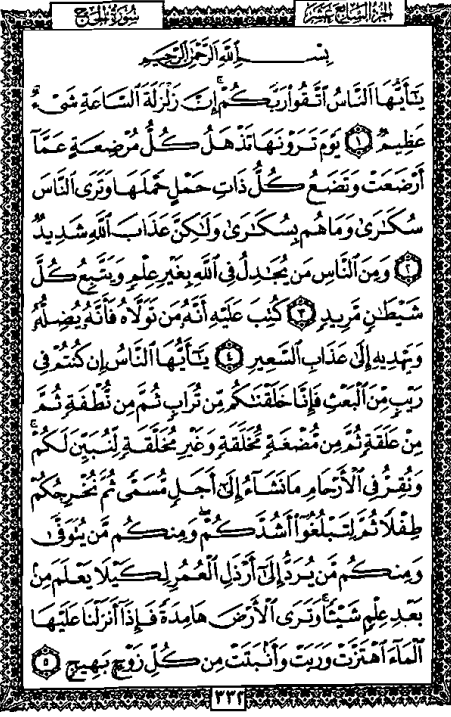 سُورَةُ الحَجِّ
الجُزءُ السَّابِعَ عَشَر
بِسْمِ اللَّهِ الرَّحْمَٰنِ الرَّحِيمِ
يَٰٓأَيُّهَا ٱلنَّاسُ ٱتَّقُوا۟ رَبَّكُمْ ۚ إِنَّ زَلْزَلَةَ ٱلسَّاعَةِ شَىْءٌ
عَظِيمٌ ﴿١﴾ يَوْمَ تَرَوْنَهَا تَذْهَلُ كُلُّ مُرْضِعَةٍ عَمَّآ
أَرْضَعَتْ وَتَضَعُ كُلُّ ذَاتِ حَمْلٍ حَمْلَهَا وَتَرَى ٱلنَّاسَ
سُكَٰرَىٰ وَمَا هُم بِسُكَٰرَىٰ وَلَٰكِنَّ عَذَابَ ٱللَّهِ شَدِيدٌ
﴿٢﴾ وَمِنَ ٱلنَّاسِ مَن يُجَٰدِلُ فِى ٱللَّهِ بِغَيْرِ عِلْمٍ وَيَتَّبِعُ كُلَّ
شَيْطَٰنٍ مَّرِيدٍ ﴿٣﴾ كُتِبَ عَلَيْهِ أَنَّهُۥ مَن تَوَلَّاهُ فَأَنَّهُۥ يُضِلُّهُۥ
وَيَهْدِيهِ إِلَىٰ عَذَابِ ٱلسَّعِيرِ ﴿٤﴾ يَٰٓأَيُّهَا ٱلنَّاسُ إِن كُنتُمْ فِى
رَيْبٍ مِّنَ ٱلْبَعْثِ فَإِنَّا خَلَقْنَٰكُم مِّن تُرَابٍ ثُمَّ مِن نُّطْفَةٍ ثُمَّ
مِنْ عَلَقَةٍ ثُمَّ مِن مُّضْغَةٍ مُّخَلَّقَةٍ وَغَيْرِ مُخَلَّقَةٍ لِّنُبَيِّنَ لَكُمْ ۚ
وَنُقِرُّ فِى ٱلْأَرْحَامِ مَا نَشَآءُ إِلَىٰٓ أَجَلٍ مُّسَمًّى ثُمَّ نُخْرِجُكُمْ
طِفْلًا ثُمَّ لِتَبْلُغُوٓا۟ أَشُدَّكُمْ ۖ وَمِنكُم مَّن يُتَوَفَّىٰ
وَمِنكُم مَّن يُرَدُّ إِلَىٰٓ أَرْذَلِ ٱلْعُمُرِ لِكَيْلَا يَعْلَمَ مِنۢ
بَعْدِ عِلْمٍ شَيْـًٔا ۚ وَتَرَى ٱلْأَرْضَ هَامِدَةً فَإِذَآ أَنزَلْنَا عَلَيْهَا
ٱلْمَآءَ ٱهْتَزَّتْ وَرَبَتْ وَأَنۢبَتَتْ مِن كُلِّ زَوْجٍۭ بَهِيجٍ ﴿٥﴾
٣٣٢